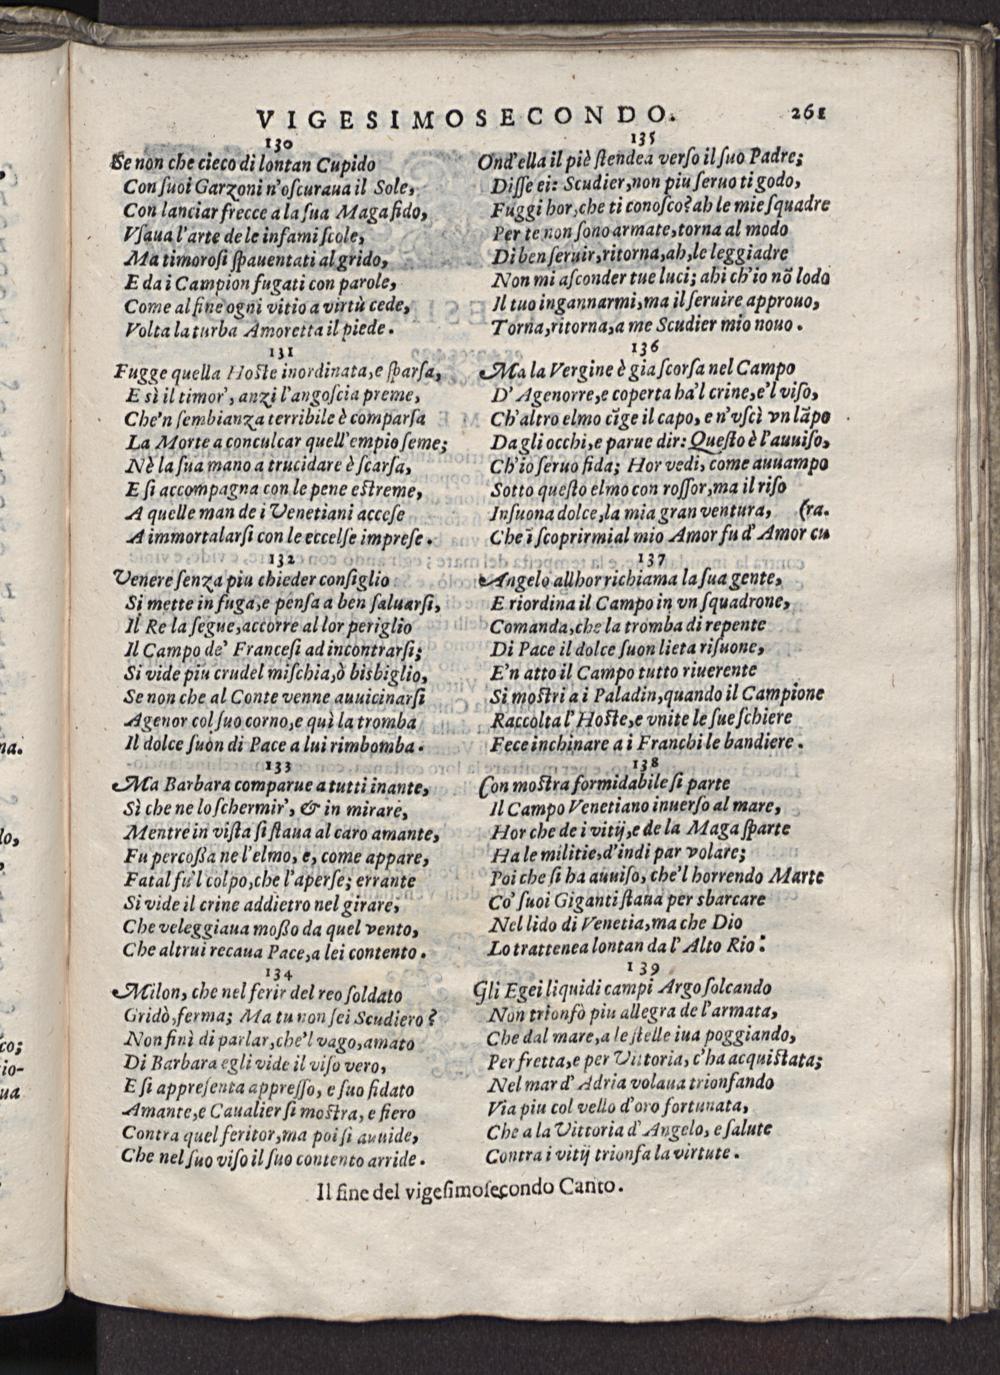 VIGESIMOSECONDO. 261
130
Se non che cieco di lontan Cupido
Con ſuoi Garzoni n'oſcuraua il Sole,
Con lanciar frecce a la ſua Maga fido,
Vſaua l'arte de le infami ſcole,
Ma timoroſi ſpauentati al grido,
E da i Campion fugati con parole,
Come al fine ogni vitio a virtù cede,
Volta la turba Amoretta il piede.
131
Fugge quella Hoſte inordinata, e ſparſa,
E sì il timor', anzi l'angoſcia preme,
Che'n ſembianza terribile è comparſa
La Morte a conculcar quell'empio ſeme;
Nè la ſua mano a trucidare è ſcarſa,
E ſi accompagna con le pene eſtreme,
A quelle man de i Venetiani acceſe
A immortalarſi con le eccelſe impreſe.
132
Venere ſenza piu chieder conſiglio
Si mette in fuga, e penſa a ben ſaluarſi,
Il Re la ſegue, accorre al lor periglio
Il Campo de' Franceſi ad incontrarſi;
Si vide piu crudel miſchia, ò bisbiglio,
Se non che al Conte venne auuicinarſi
Agenor col ſuo corno, e quì la tromba
Il dolce ſuon di Pace a lui rimbomba.
133
Ma Barbara comparue a tutti inante,
Sì che ne lo ſchermir', & in mirare,
Mentre in viſta ſi ſtaua al caro amante,
Fu percoſſa ne l'elmo, e, come appare,
Fatal fu'l colpo, che l'aperſe; errante
Si vide il crine addietro nel girare,
Che veleggiaua moſſo da quel vento,
Che altrui recaua Pace, a lei contento.
134
Milon, che nel ferir del reo ſoldato
Gridò, ferma; Ma tu non ſei Scudiero?
Non finì di parlar, che'l vago, amato
Di Barbara egli vide il viſo vero,
E ſi appreſenta appreſſo, e ſuo fidato
Amante, e Caualier ſi moſtra, e fiero
Contra quel feritor, ma poi ſi auuide,
Che nel ſuo viſo il ſuo contento arride.
135
Ond'ella il piè ſtendea verſo il ſuo Padre;
Diſſe ei: Scudier, non piu ſeruo ti godo,
Fuggi hor, che ti conoſco? ah le mie ſquadre
Per te non ſono armate, torna al modo
Di ben ſeruir, ritorna, ah, le leggiadre
Non mi aſconder tue luci; ahi ch'io nõ lodo
Il tuo ingannarmi, ma il ſeruire approuo,
Torna, ritorna, a me Scudier mio nouo.
136
Ma la Vergine è gia ſcorſa nel Campo
D'Agenorre, e coperta ha'l crine, e'l viſo,
Ch'altro elmo cĩge il capo, e n'vſcì vn lãpo
Da gli occhi, e parue dir: Queſto è l'auuiſo,
Ch'io ſeruo fida; Hor vedi, come auuampo
Sotto queſto elmo con roſſor, ma il riſo
Inſuona dolce, la mia gran ventura, (ra.
Che ĩ ſcoprirmi al mio Amor fu d'Amor cu
137
Angelo allhor richiama la ſua gente,
E riordina il Campo in vn ſquadrone,
Comanda, che la tromba di repente
Di Pace il dolce ſuon lieta riſuone,
E'n atto il Campo tutto riuerente
Si moſtri a i Paladin, quando il Campione
Raccolta l'Hoſte, e vnite le ſue ſchiere
Fece inchinare a i Franchi le bandiere.
138
Con moſtra formidabile ſi parte
Il Campo Venetiano inuerſo al mare,
Hor che de i vitij, e de la Maga ſparte
Ha le militie, d'indi par volare;
Poi che ſi ha auuiſo, che'l horrendo Marte
Co' ſuoi Giganti ſtaua per sbarcare
Nel lido di Venetia, ma che Dio
Lo trattenea lontan da l'Alto Rio:
139
Gli Egei liquidi campi Argo ſolcando
Non trionfò piu allegra de l'armata,
Che dal mare, a le ſtelle iua poggiando,
Per fretta, e per Vittoria, c'ha acquiſtata;
Nel mar d'Adria volaua trionfando
Via piu col vello d'oro fortunata,
Che a la Vittoria d'Angelo, e ſalute
Contra i vitij trionfa la virtute.
Il fine del vigeſimoſecondo Canto.